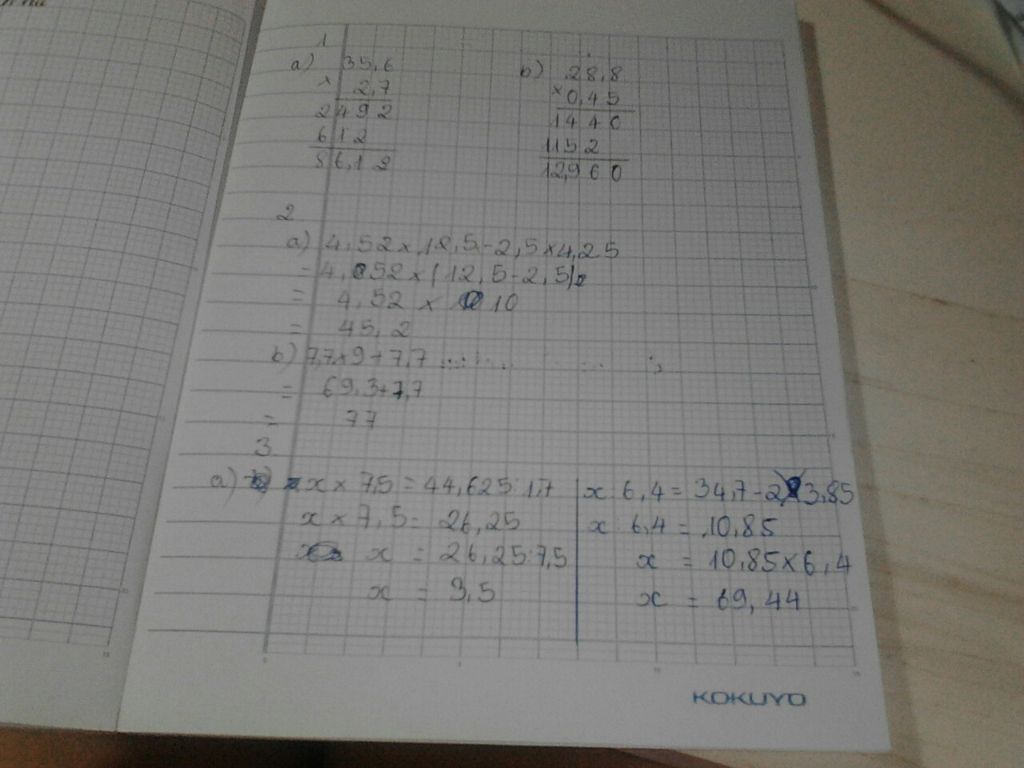 1
a) 35,6
× 2,7
2492
612
56,12
b) 28,8
× 0,45
1440
1152
12,960
2
a) 4,52 × 12,5 - 2,5 × 4,25
= 4,52 × (12,5 - 2,5)
= 4,52 × 10
= 45,2
b) 7,7 × 9 + 7,7
= 69,3 + 7,7
= 77
3
a) x × 7,5 = 44,625 : 1,7
x × 7,5 = 26,25
x = 26,25 : 7,5
x = 9,5
x : 6,4 = 34,7 - 23,85
x : 6,4 = 10,85
x = 10,85 × 6,4
x = 69,44
KOKUYO